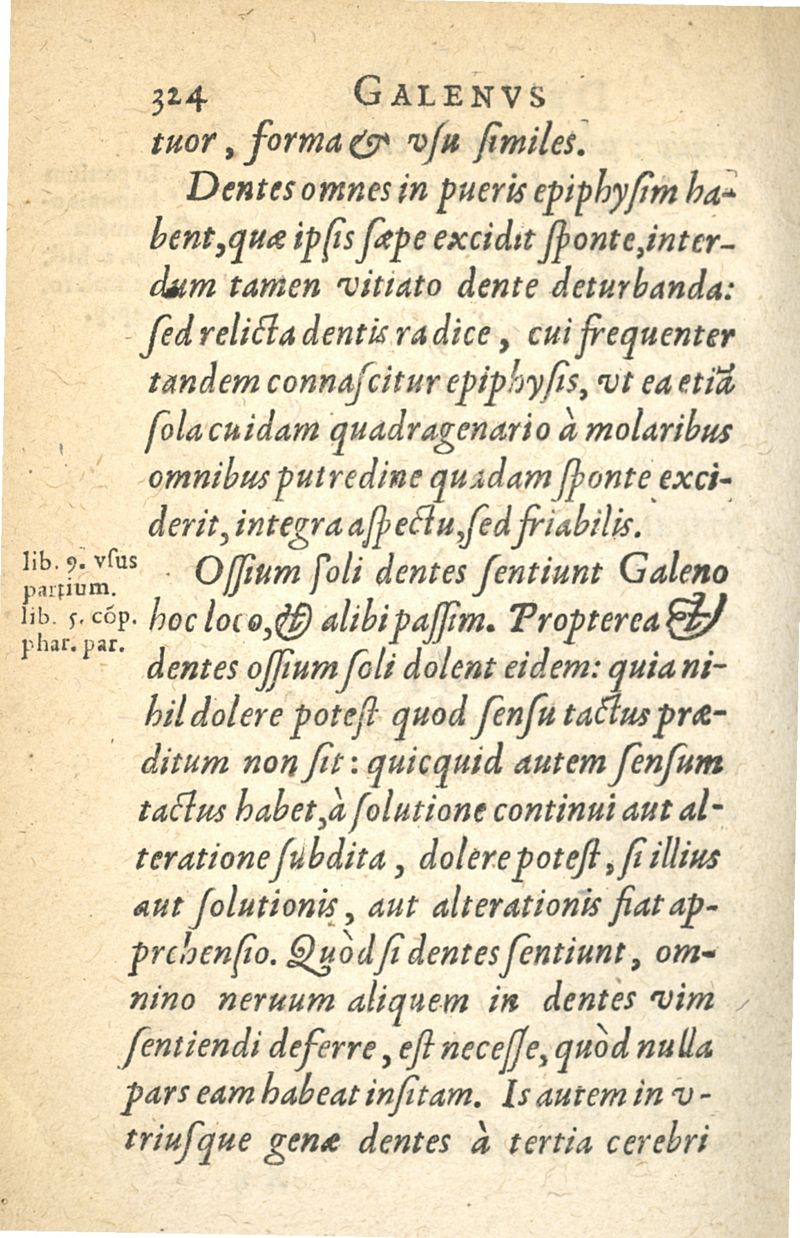 324 GALENVS
tuor, forma & vſu ſimiles.
Dentes omnes in pueris epiphyſim ha-
bent, quæ ipſis ſæpe excidit ſponte, inter-
dum tamen vitiato dente deturbanda:
ſed relicta dentis radice, cui frequenter
tandem connaſcitur epiphyſis, vt ea etiã
ſola cuidam quadragenario à molaribus
omnibus putredine quadam ſponte exci-
derit, integra aſpectu, ſed friabilis.
lib. 9. vſus
partium.
lib. 5. cõp.
phar. par.
Oſſium ſoli dentes ſentiunt Galeno
hoc loco, & alibi paſſim. Propterea &
dentes oſſium ſoli dolent eidem: quia ni-
hil dolere poteſt quod ſenſu tactus præ-
ditum non ſit: quicquid autem ſenſum
tactus habet, à ſolutione continui aut al-
teratione ſubdita, dolere poteſt, ſi illius
aut ſolutionis, aut alterationis fiat ap-
prehenſio. Quòd ſi dentes ſentiunt, om-
nino neruum aliquem in dentes vim
ſentiendi deferre, eſt neceſſe, quòd nulla
pars eam habeat inſitam. Is autem in v-
triuſque genæ dentes à tertia cerebri